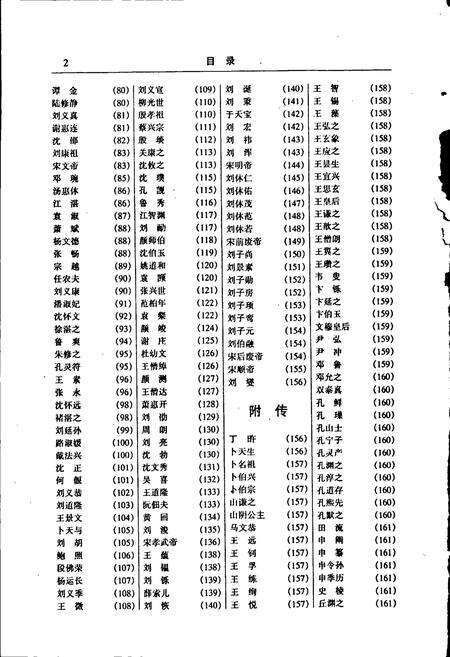 2
目录
谭金 (80)
陆修静 (80)
刘义真 (81)
谢惠连 (81)
沈邵 (82)
刘康祖 (83)
宋文帝 (83)
邓琬 (85)
汤惠休 (86)
江湛 (86)
袁淑 (87)
萧斌 (88)
杨文德 (88)
张畅 (88)
宗越 (89)
任农夫 (90)
刘义康 (90)
潘淑妃 (91)
沈怀文 (92)
徐湛之 (93)
鲁爽 (94)
朱修之 (95)
孔灵符 (95)
王素 (96)
张永 (96)
沈怀远 (98)
褚湛之 (98)
刘延孙 (99)
路淑媛 (100)
戴法兴 (100)
沈正 (101)
何偃 (101)
刘义恭 (102)
刘道隆 (103)
王景文 (104)
卜天与 (105)
刘胡 (105)
鲍照 (106)
段佛荣 (107)
杨运长 (107)
刘义季 (108)
王微 (108)
刘义宣 (109)
柳光世 (110)
殷孝祖 (110)
蔡兴宗 (111)
殷琰 (112)
关康之 (113)
沈攸之 (113)
沈璞 (115)
孔觊 (115)
鲁秀 (116)
江智渊 (117)
刘勔 (117)
颜师伯 (118)
沈伯玉 (119)
姚道和 (120)
袁顗 (120)
张兴世 (121)
范柏年 (122)
袁粲 (122)
颜竣 (124)
谢庄 (125)
杜幼文 (126)
王僧绰 (126)
颜测 (127)
王僧达 (127)
萧惠开 (128)
刘劭 (129)
周朗 (130)
刘亮 (130)
沈勃 (130)
沈文秀 (131)
吴喜 (132)
王道隆 (133)
阮佃夫 (133)
黄回 (134)
刘浚 (135)
宋孝武帝 (136)
王蕴 (138)
刘韫 (138)
刘铄 (139)
薛索儿 (139)
刘恢 (140)
刘诞 (140)
刘秉 (141)
于天宝 (142)
刘宏 (142)
刘祎 (143)
刘绰 (143)
宋明帝 (144)
刘休仁 (145)
刘休祐 (146)
刘休茂 (147)
刘休范 (148)
刘休若 (148)
宋前废帝 (149)
刘子尚 (150)
刘景素 (151)
刘子勋 (152)
刘子房 (152)
刘子顼 (153)
刘子鸾 (153)
刘子元 (154)
刘伯融 (154)
宋后废帝 (154)
宋顺帝 (155)
刘燮 (156)
附传
丁旿 (156)
卜天生 (156)
卜名祖 (157)
卜伯兴 (157)
卜伯宗 (157)
山谦之 (157)
山阴公主 (157)
马文恭 (157)
王远 (157)
王钊 (157)
王孚 (157)
王练 (157)
王绚 (157)
王悦 (157)
王智 (158)
王锡 (158)
王藻 (158)
王弘之 (158)
王玄象 (158)
王应之 (158)
王昙生 (158)
王宜兴 (158)
王思玄 (158)
王皇后 (158)
王谦之 (158)
王敬之 (158)
王僧朗 (158)
王翼之 (159)
王瓒之 (159)
韦叟 (159)
卞铄 (159)
卞延之 (159)
卞伯玉 (159)
文穆皇后 (159)
尹弘 (159)
尹冲 (159)
邓鲁 (159)
邓允之 (160)
双泰真 (160)
孔鲜 (160)
孔璪 (160)
孔山士 (160)
孔宁子 (160)
孔灵产 (160)
孔渊之 (160)
孔淳之 (160)
孔道存 (160)
孔熙先 (160)
孔默之 (160)
田流 (161)
申阐 (161)
申纂 (161)
申令孙 (161)
申季历 (161)
史稜 (161)
丘渊之 (161)